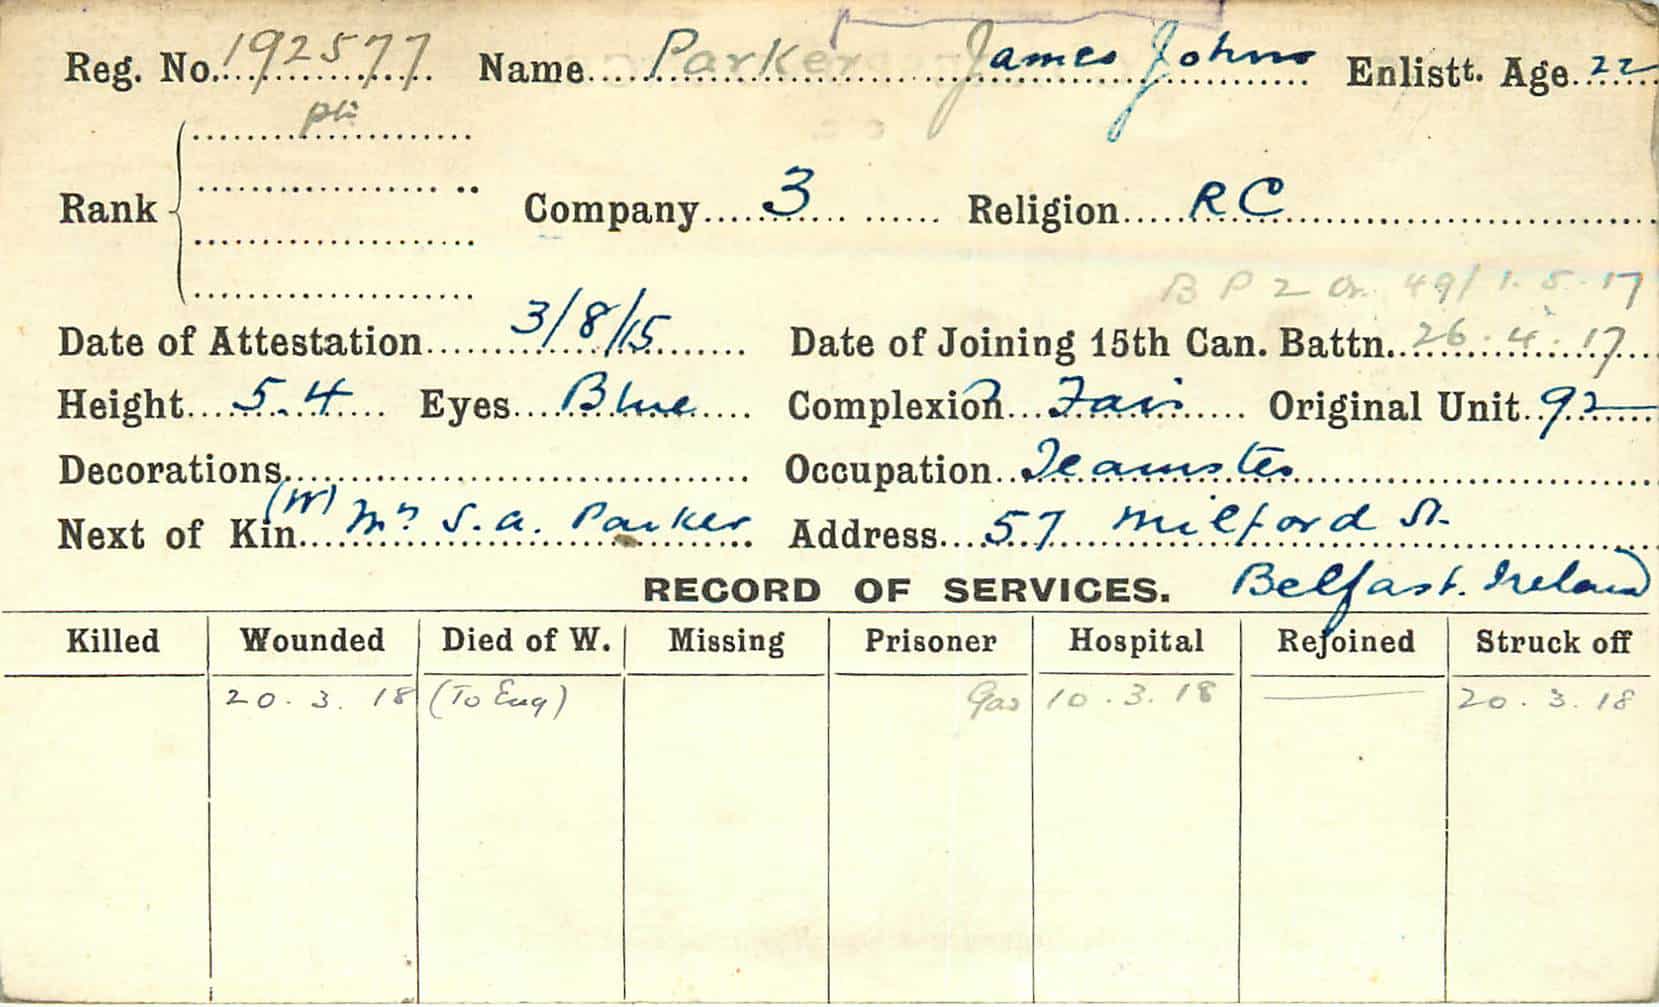 Reg. No. 192577 Name Parker James John Enlistt. Age 22
pte
Rank Company 3 Religion RC
B P 2 Or. 49/1.5.17
Date of Attestation 3/8/15 Date of Joining 15th Can. Battn. 26.4.17
Height 5.4 Eyes Blue Complexion Fair Original Unit 92
Decorations Occupation Teamster
Next of Kin (W) Mrs S.A. Parker Address 57 Milford St.
Belfast. Ireland
RECORD OF SERVICES.
Killed Wounded Died of W. Missing Prisoner Hospital Rejoined Struck off
20.3.18 (To Eng) Gas 10.3.18 — 20.3.18